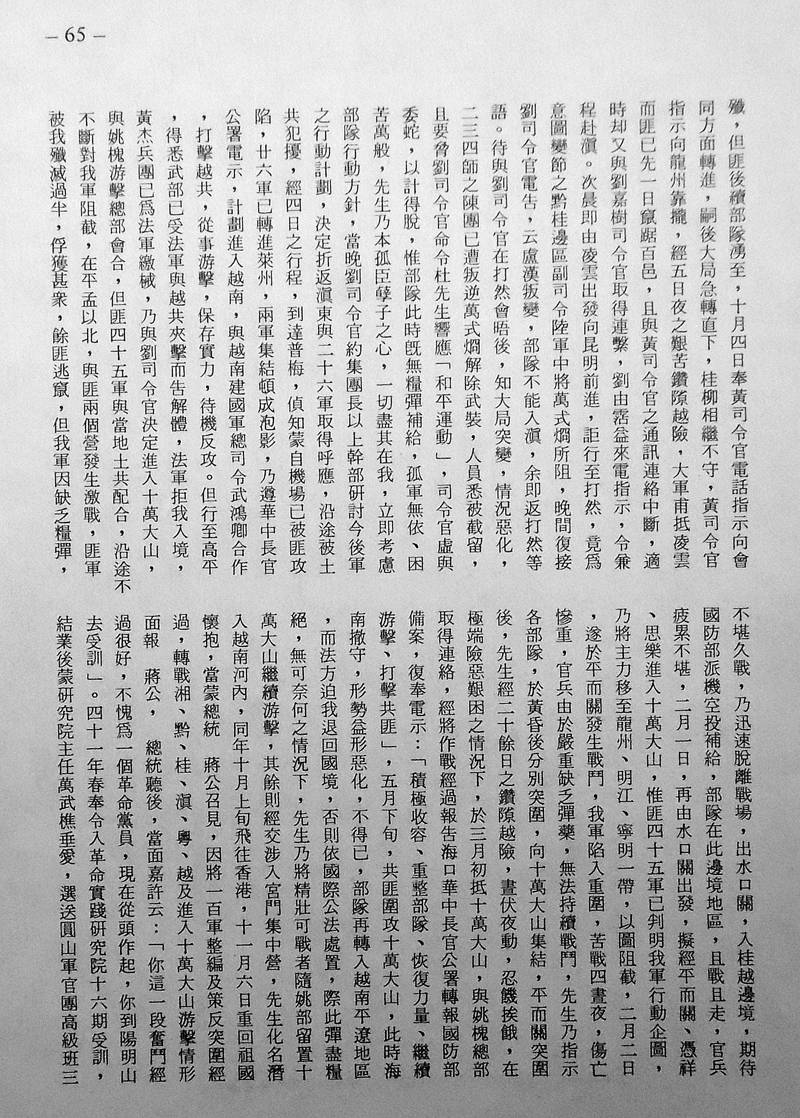 – 65 –
殲，但匪後續部隊湧至，十月四日奉黃司令官電話指示向會
同方面轉進，嗣後大局急轉直下，桂柳相繼不守，黃司令官
指示向龍州靠攏，經五日夜之艱苦鑽隙越險，大軍甫抵凌雲
而匪已先一日竄踞百邑，且與黃司令官之通訊連絡中斷，適
時却又與劉嘉樹司令官取得連繫，劉由霑益來電指示，令兼
程赴滇。次晨即由凌雲出發向昆明前進，詎行至打然，竟爲
意圖變節之黔桂邊區副司令陸軍中將萬式烱所阻，晚間復接
劉司令官電告，云盧漢叛變，部隊不能入滇，余即返打然等
語。待與劉司令官在打然會晤後，知大局突變，情況惡化，
二三四師之陳團已遭叛逆萬式烱解除武裝，人員悉被截留，
且要脅劉司令官命令杜先生響應「和平運動」，司令官虛與
委蛇，以計得脫，惟部隊此時旣無糧彈補給，孤軍無依、困
苦萬般，先生乃本孤臣孽子之心，一切盡其在我，立即考慮
部隊行動方針，當晚劉司令官約集團長以上幹部研討今後軍
之行動計劃，決定折返滇東與二十六軍取得呼應，沿途被土
共犯擾，經四日之行程，到達普梅，偵知蒙自機場已被匪攻
陷，廿六軍已轉進萊州，兩軍集結頓成泡影，乃遵華中長官
公署電示，計劃進入越南，與越南建國軍總司令武鴻卿合作
，打擊越共，從事游擊，保存實力，待機反攻。但行至高平
，得悉武部已受法軍與越共夾擊而告解體，法軍拒我入境，
黃杰兵團已爲法軍繳械，乃與劉司令官決定進入十萬大山，
與姚槐游擊總部會合，但匪四十五軍與當地土共配合，沿途不
不斷對我軍阻截，在平孟以北，與匪兩個營發生激戰，匪軍
被我殲滅過半，俘獲甚衆，餘匪逃竄，但我軍因缺乏糧彈，
不堪久戰，乃迅速脫離戰場，出水口關，入桂越邊境，期待
國防部派機空投補給，部隊在此邊境地區，且戰且走，官兵
疲累不堪，二月一日，再由水口關出發，擬經平而關、憑祥
、思樂進入十萬大山，惟匪四十五軍已判明我軍行動企圖，
乃將主力移至龍州、明江、寧明一帶，以圖阻截，二月二日
，遂於平而關發生戰鬥，我軍陷入重圍，苦戰四晝夜，傷亡
慘重，官兵由於嚴重缺乏彈藥，無法持續戰鬥，先生乃指示
各部隊，於黃昏後分別突圍，向十萬大山集結，平而關突圍
後，先生經二十餘日之鑽隙越險，晝伏夜動，忍饑挨餓，在
極端險惡艱困之情況下，於三月初抵十萬大山，與姚槐總部
取得連絡，經將作戰經過報告海口華中長官公署轉報國防部
備案，復奉電示：「積極收容、重整部隊、恢復力量、繼續
游擊、打擊共匪」，五月下旬，共匪圍攻十萬大山，此時海
南撤守，形勢益形惡化，不得已，部隊再轉入越南平遼地區
，而法方迫我退回國境，否則依國際公法處置，際此彈盡糧
絕，無可奈何之情況下，先生乃將精壯可戰者隨姚部留置十
萬大山繼續游擊，其餘則經交涉入宮門集中營，先生化名潛
入越南河內，同年十月上旬飛往香港，十一月六日重回祖國
懷抱，當蒙總統　蔣公召見，因將一百軍整編及策反突圍經
過，轉戰湘、黔、桂、滇、粵、越及進入十萬大山游擊情形
面報　蔣公，　總統聽後，當面嘉許云：「你這一段奮鬥經
過很好，不愧爲一個革命黨員，現在從頭作起，你到陽明山
去受訓」。四十一年春奉令入革命實踐研究院十六期受訓，
結業後蒙研究院主任萬武樵垂愛，選送圓山軍官團高級班三